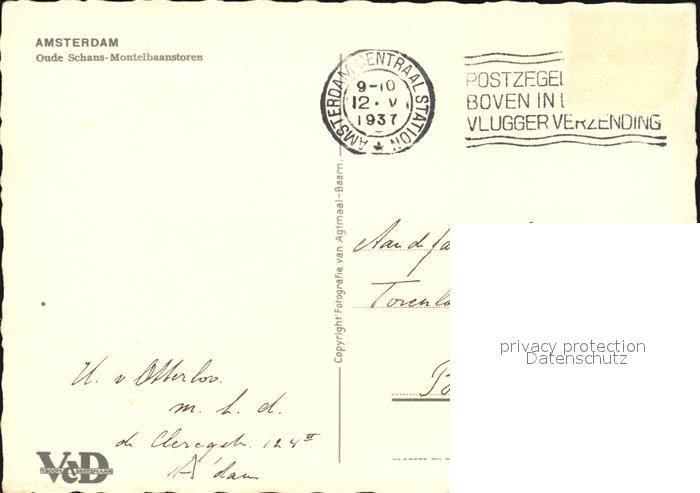 AMSTERDAM
Oude Schans-Montelbaanstoren
AMSTERDAM CENTRAAL STATION
9-10
12 · V
1937
POSTZEGEL
BOVEN IN
VLUGGER VERZENDING
Copyright Fotografie van Agtmaal-Baarn.
Aan d fa
Torenla
privacy protection
Datenschutz
H. v Otterloo.
m. h. d.
de Clercqstr. 124 II
A'dam
V&D
VROOM & DREESMANN